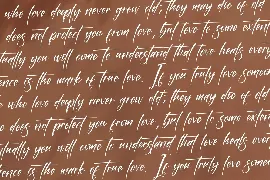 who love deeply never grow old; they may die of old
does not protect you from love, but love to some extent
adually you will come to understand that love heals every
ence is the mark of true love. If you truly love somow
who love deeply never grow old; they may die of old
does not protect you from love, but love to some exten
adually you will come to understand that love heals every
ence is the mark of true love. If you truly love somow